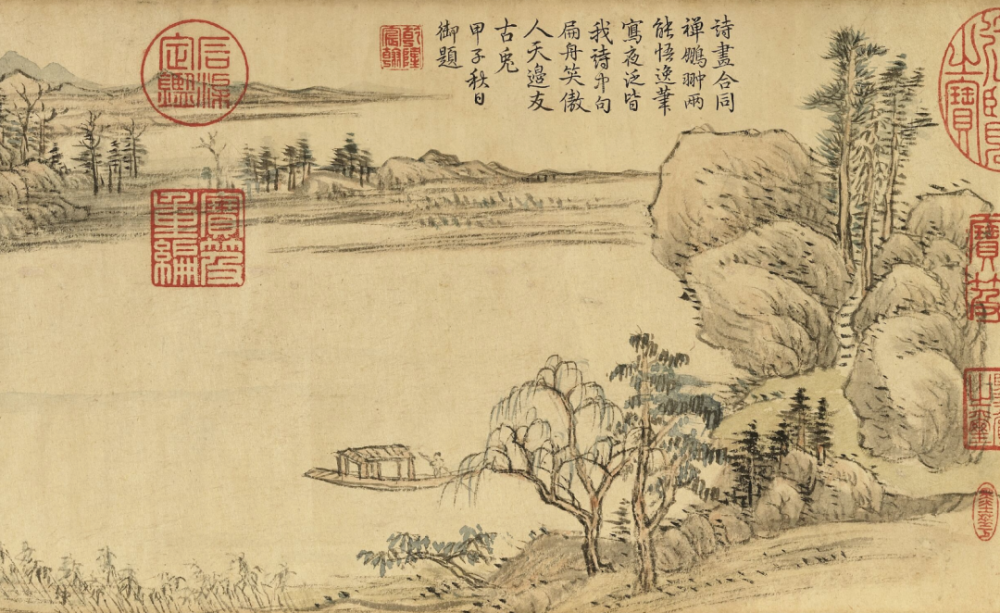 詩畫合同
禪鵬翀兩
能悟逸筆
寫夜泛皆
我詩中句
扁舟笑傲
人天邊友
古兎
甲子秋日
御題
乾隆
宸翰
石渠
定鑑
寶笈
重編
之寶
寶笈